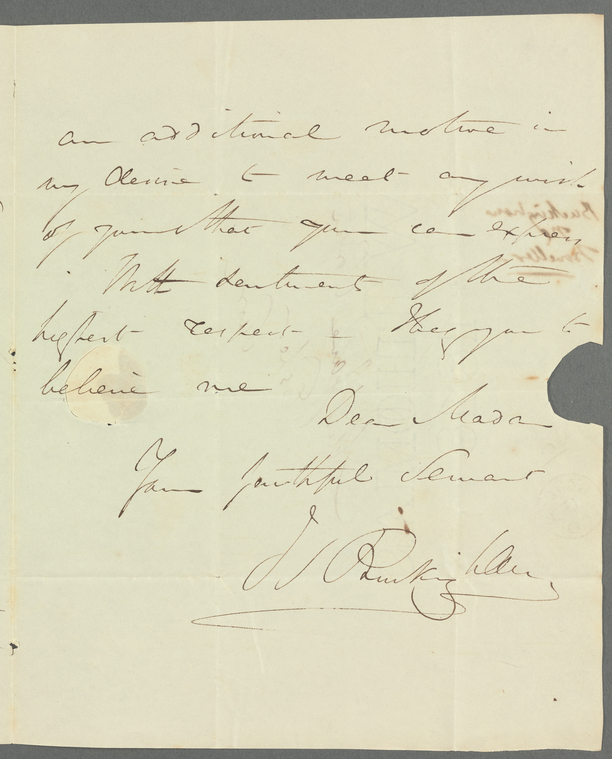 an additional motive in
my desire to meet any wish
of yours that you can express
With sentiments of the
highest respect – I beg you to
believe me
Dear Madam
Your faithful Servant
J S Buckingham
Buckingham
Traveller